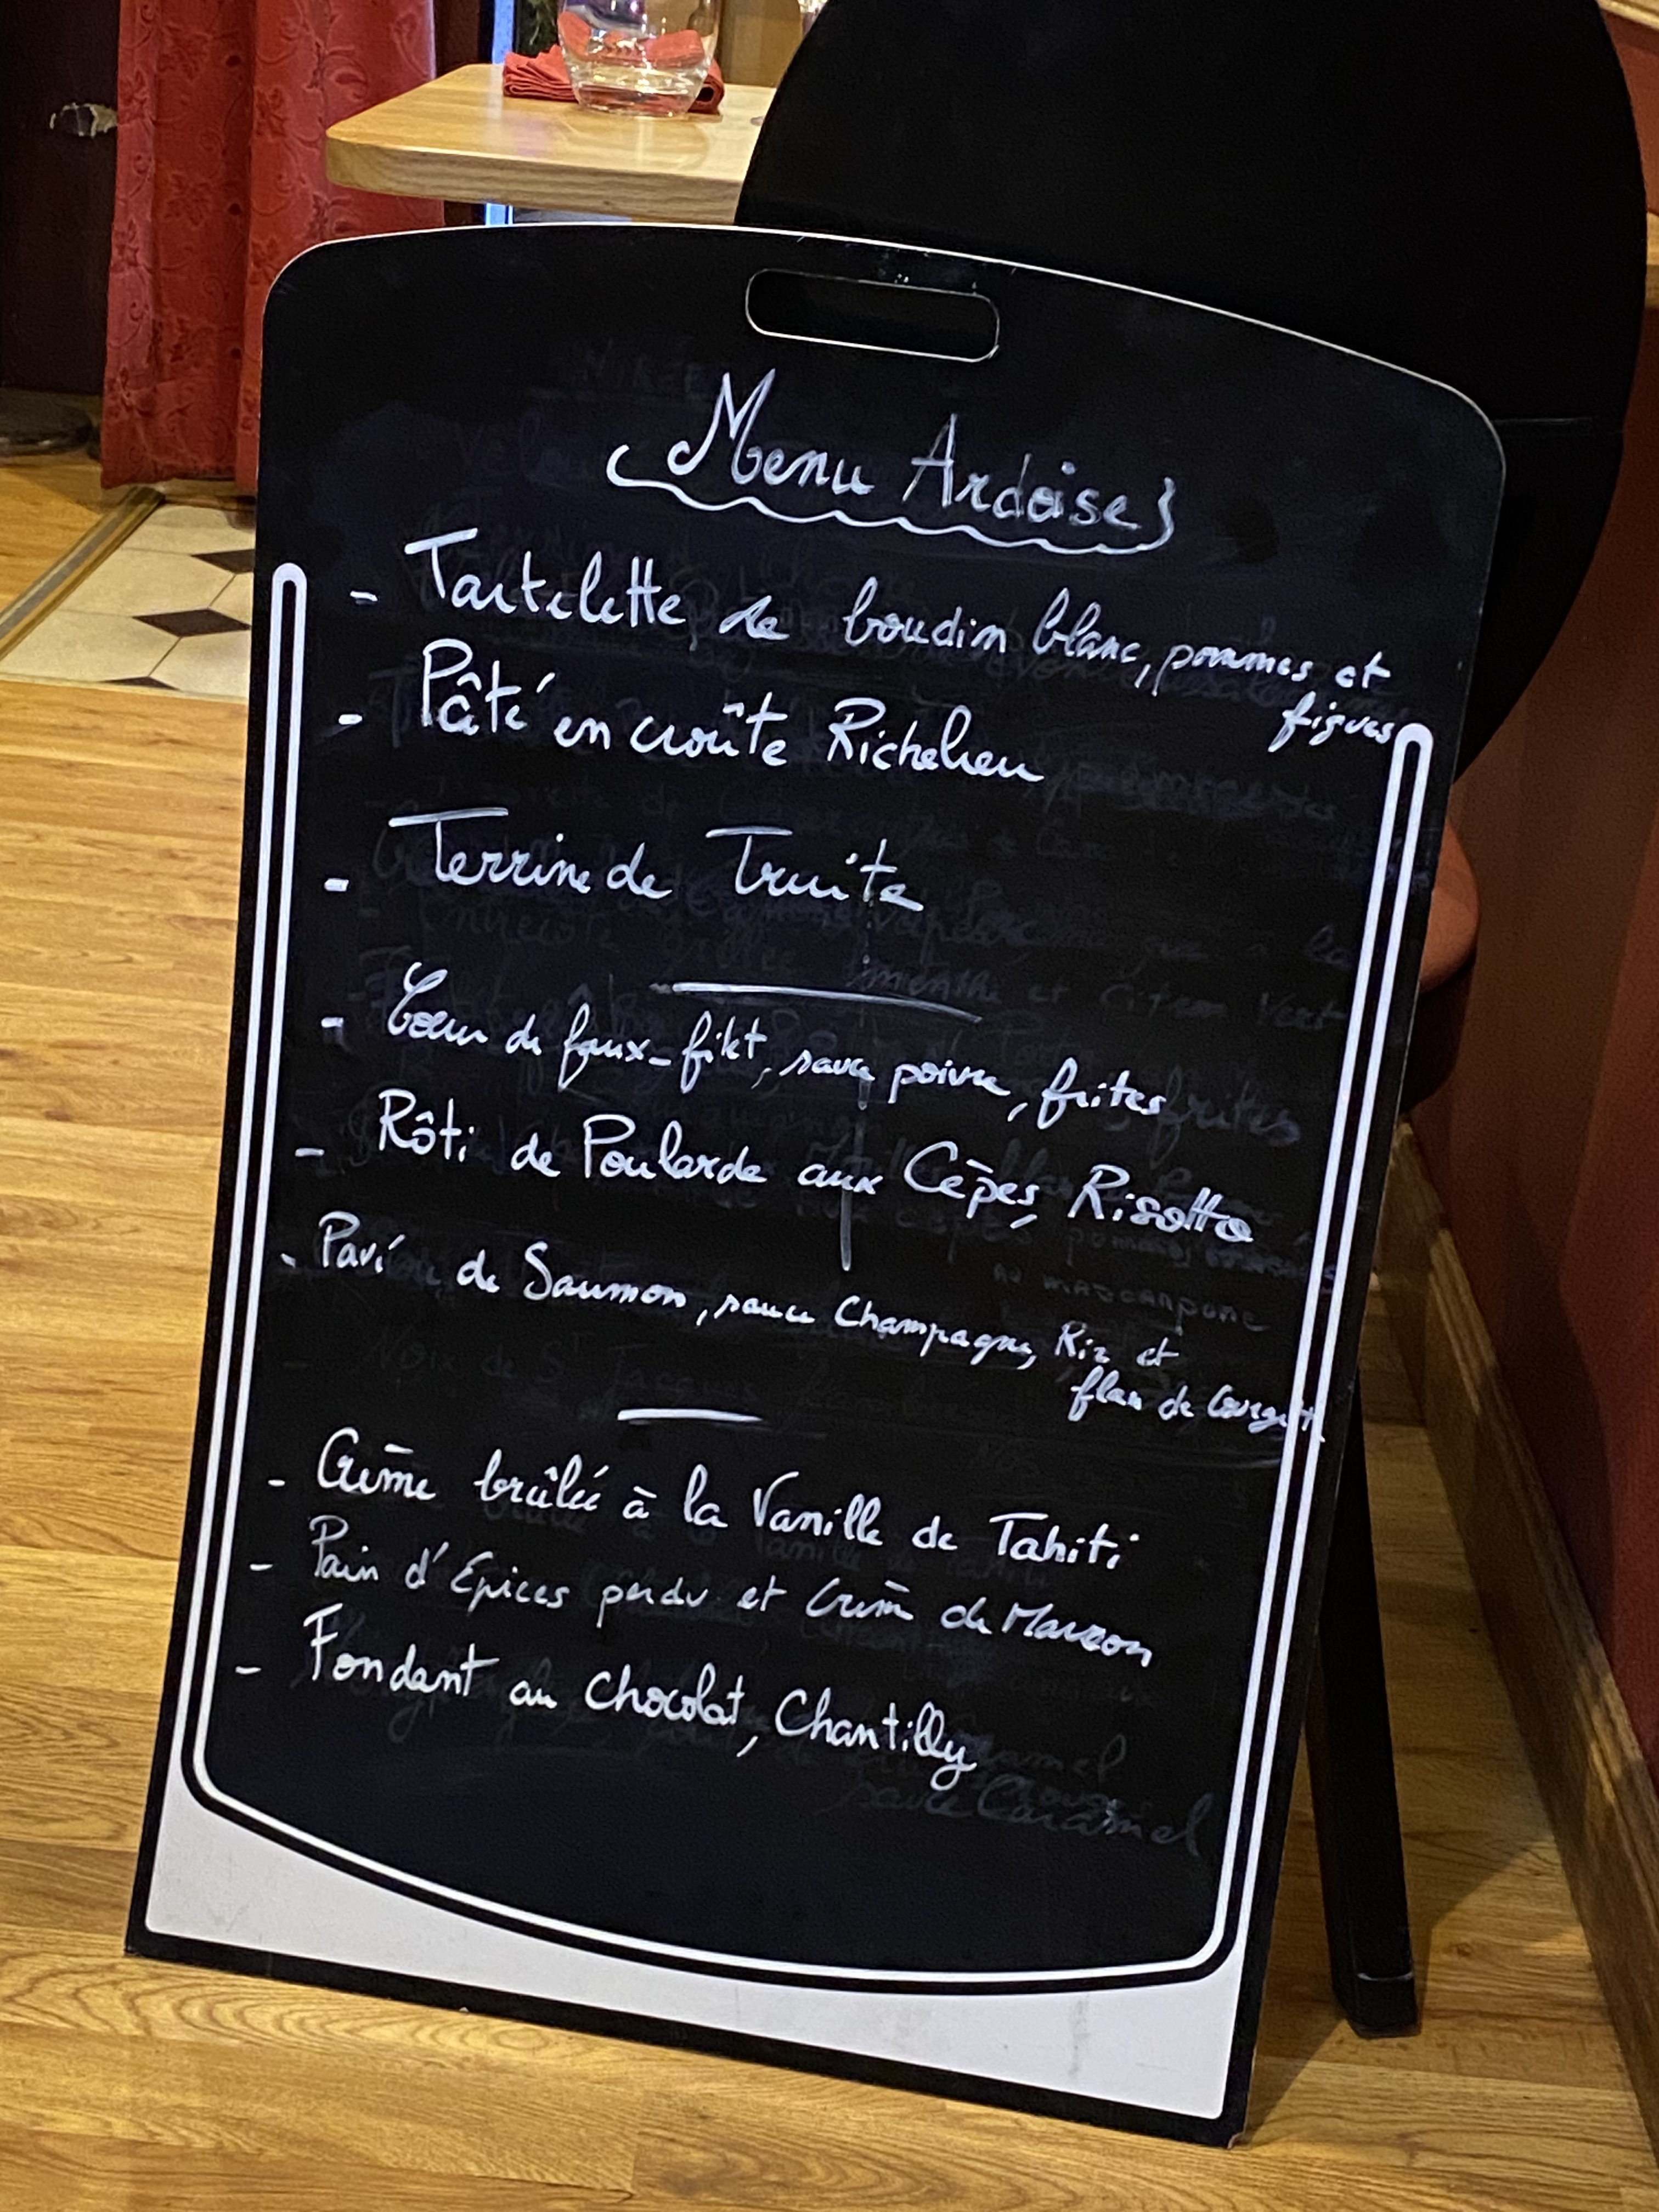 Menu Ardoise
- Tartelette de boudin blanc, pommes et
figues
- Pâté en croûte Richelieu
- Terrine de Truite
- Coeur de faux-filet, sauce poivre, frites
- Rôti de Poularde aux Cèpes, Risotto
- Pavé de Saumon, sauce Champagne, Riz et
flan de Courgett
- Crème brûlée à la Vanille de Tahiti
- Pain d'Epices perdu et Crème de Marron
- Fondant au chocolat, Chantilly
sauce Caramel